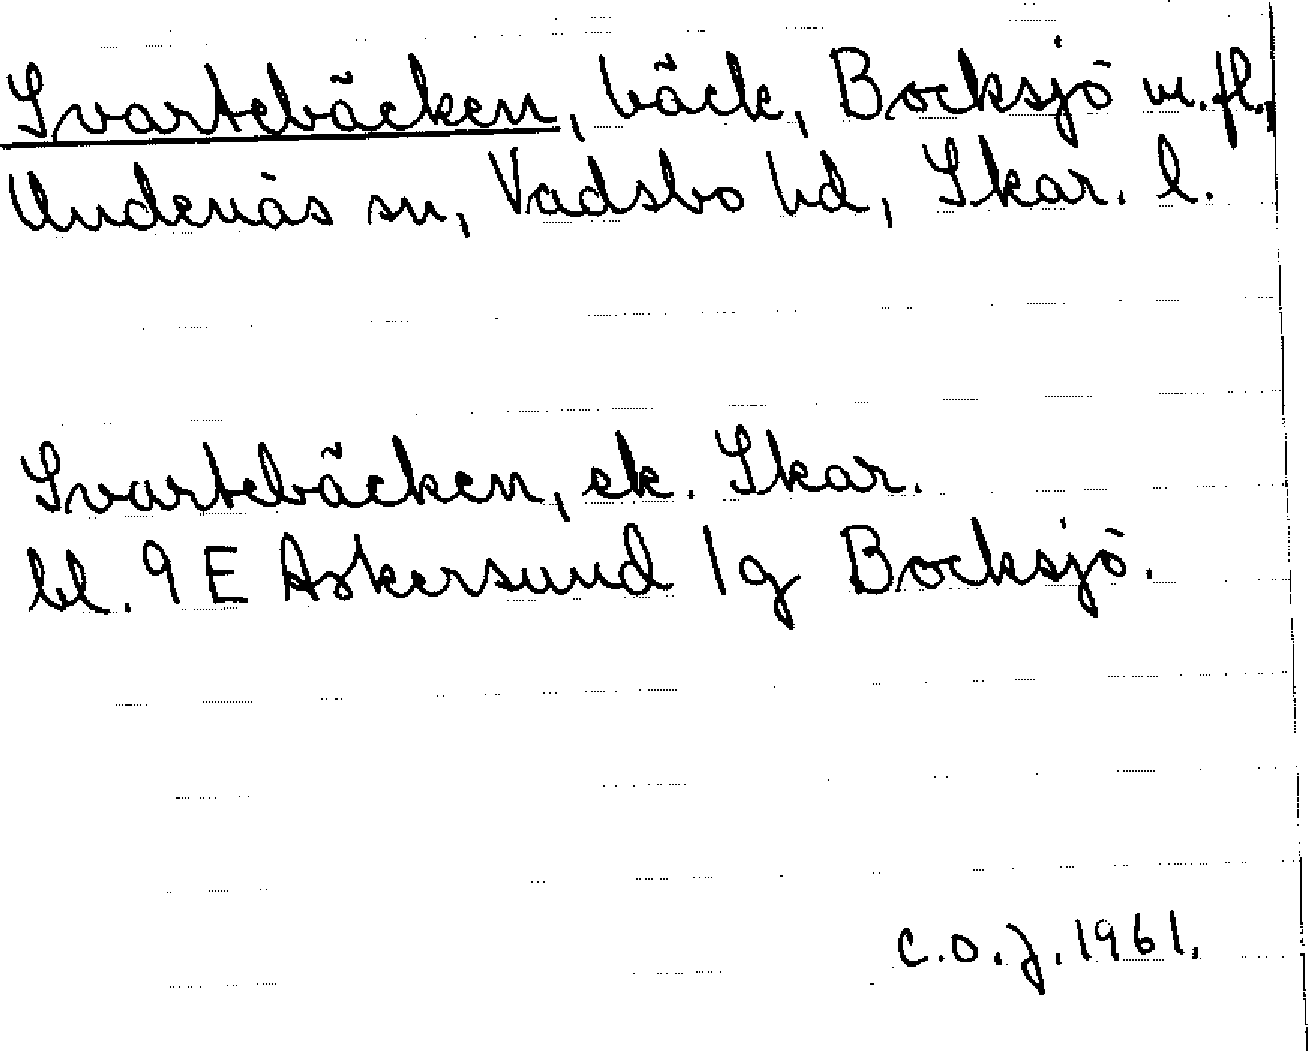 Svartebäcken, bäck, Bocksjö m.fl.,
Undenäs sn, Vadsbo hd, Skar. l.
Svartebäcken, ek. Skar.
bl. 9 E Askersund 1g Bocksjö.
C.O.J. 1961.